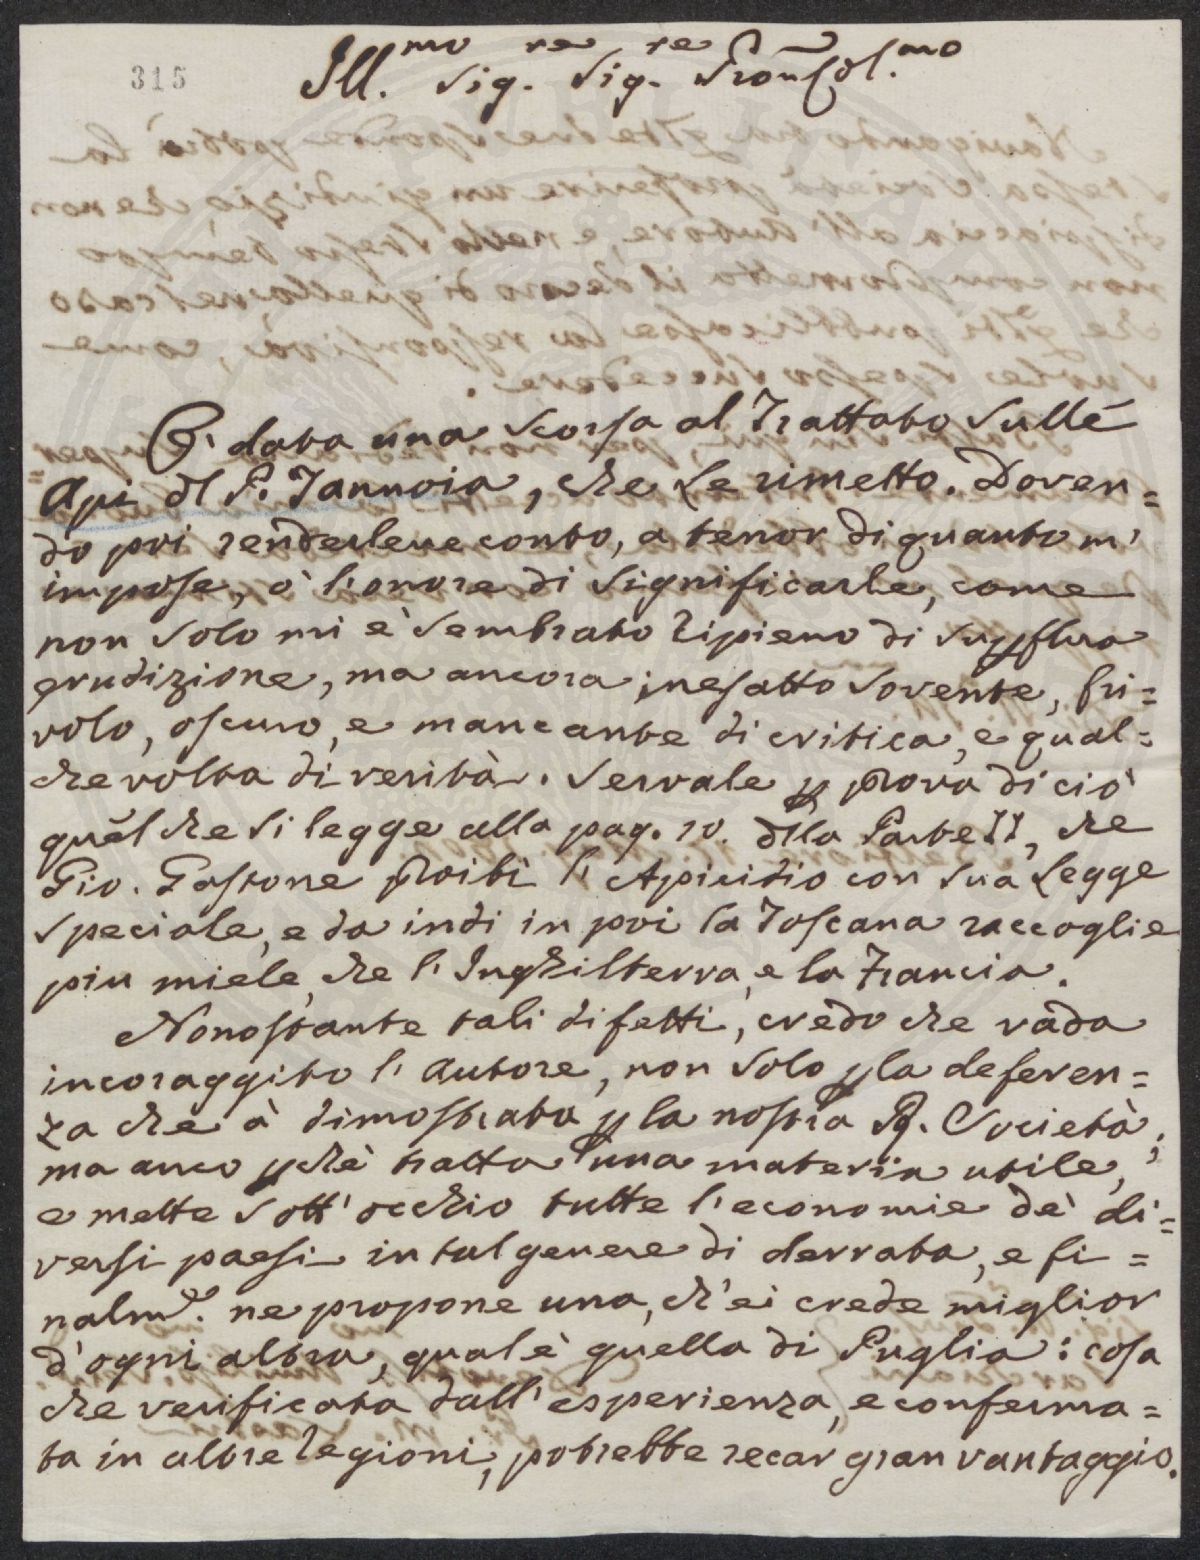 315
Ill.mo Sig.re Sig.re Pron Col.mo
O' data una scorsa al Trattato sulle
Api dl P. Tannoia, che Le rimetto. Doven=
do poi renderlene conto, a tenor di quanto m'
impose, ò l'onore di significarle, come
non solo mi è sembrato ripieno di suppflua
erudizione, ma ancora inesatto sovente, fri=
volo, oscuro, e mancante di critica, e qual=
che volta di verità. Servale p prova di ciò
quel che si legge alla pag. 10. dlla Parte II, che
Gio. Gastone proibì l'Apicidio con sua Legge
speciale, e da indi in poi la Toscana raccoglie
piu miele, che l'Inghilterra, e la Francia.
Nonostante tali difetti, credo che vada
incoraggito l'Autore, non solo p la deferen=
za che à dimostrata p la nostra R. Società,
ma anco pchè tratta una materia utile,
e mette sott'occhio tutte l'economie de' di=
versi paesi in tal genere di derrata, e fi=
nalme. ne propone una, ch'ei crede miglior
d'ogni altra, qual è quella di Puglia: cosa
che verificata dall'esperienza, e conferma=
ta in altre regioni, potrebbe recar gran vantaggio.